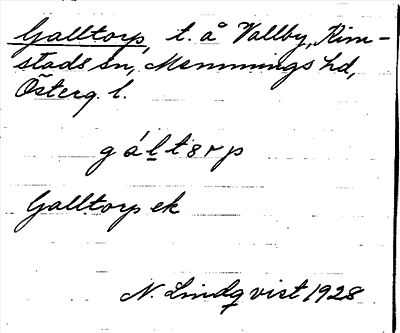 Galltorp, t. å Vallby, Kim-
stads sn, Memmings hd,
Österg. l.
gáltorp
Galltorp ek
N. Lindqvist 1928